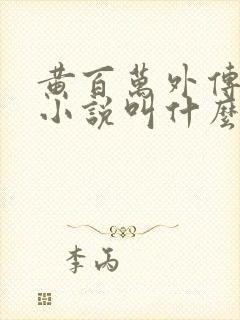 黄百萬外傳
小說叫什麼
李丙